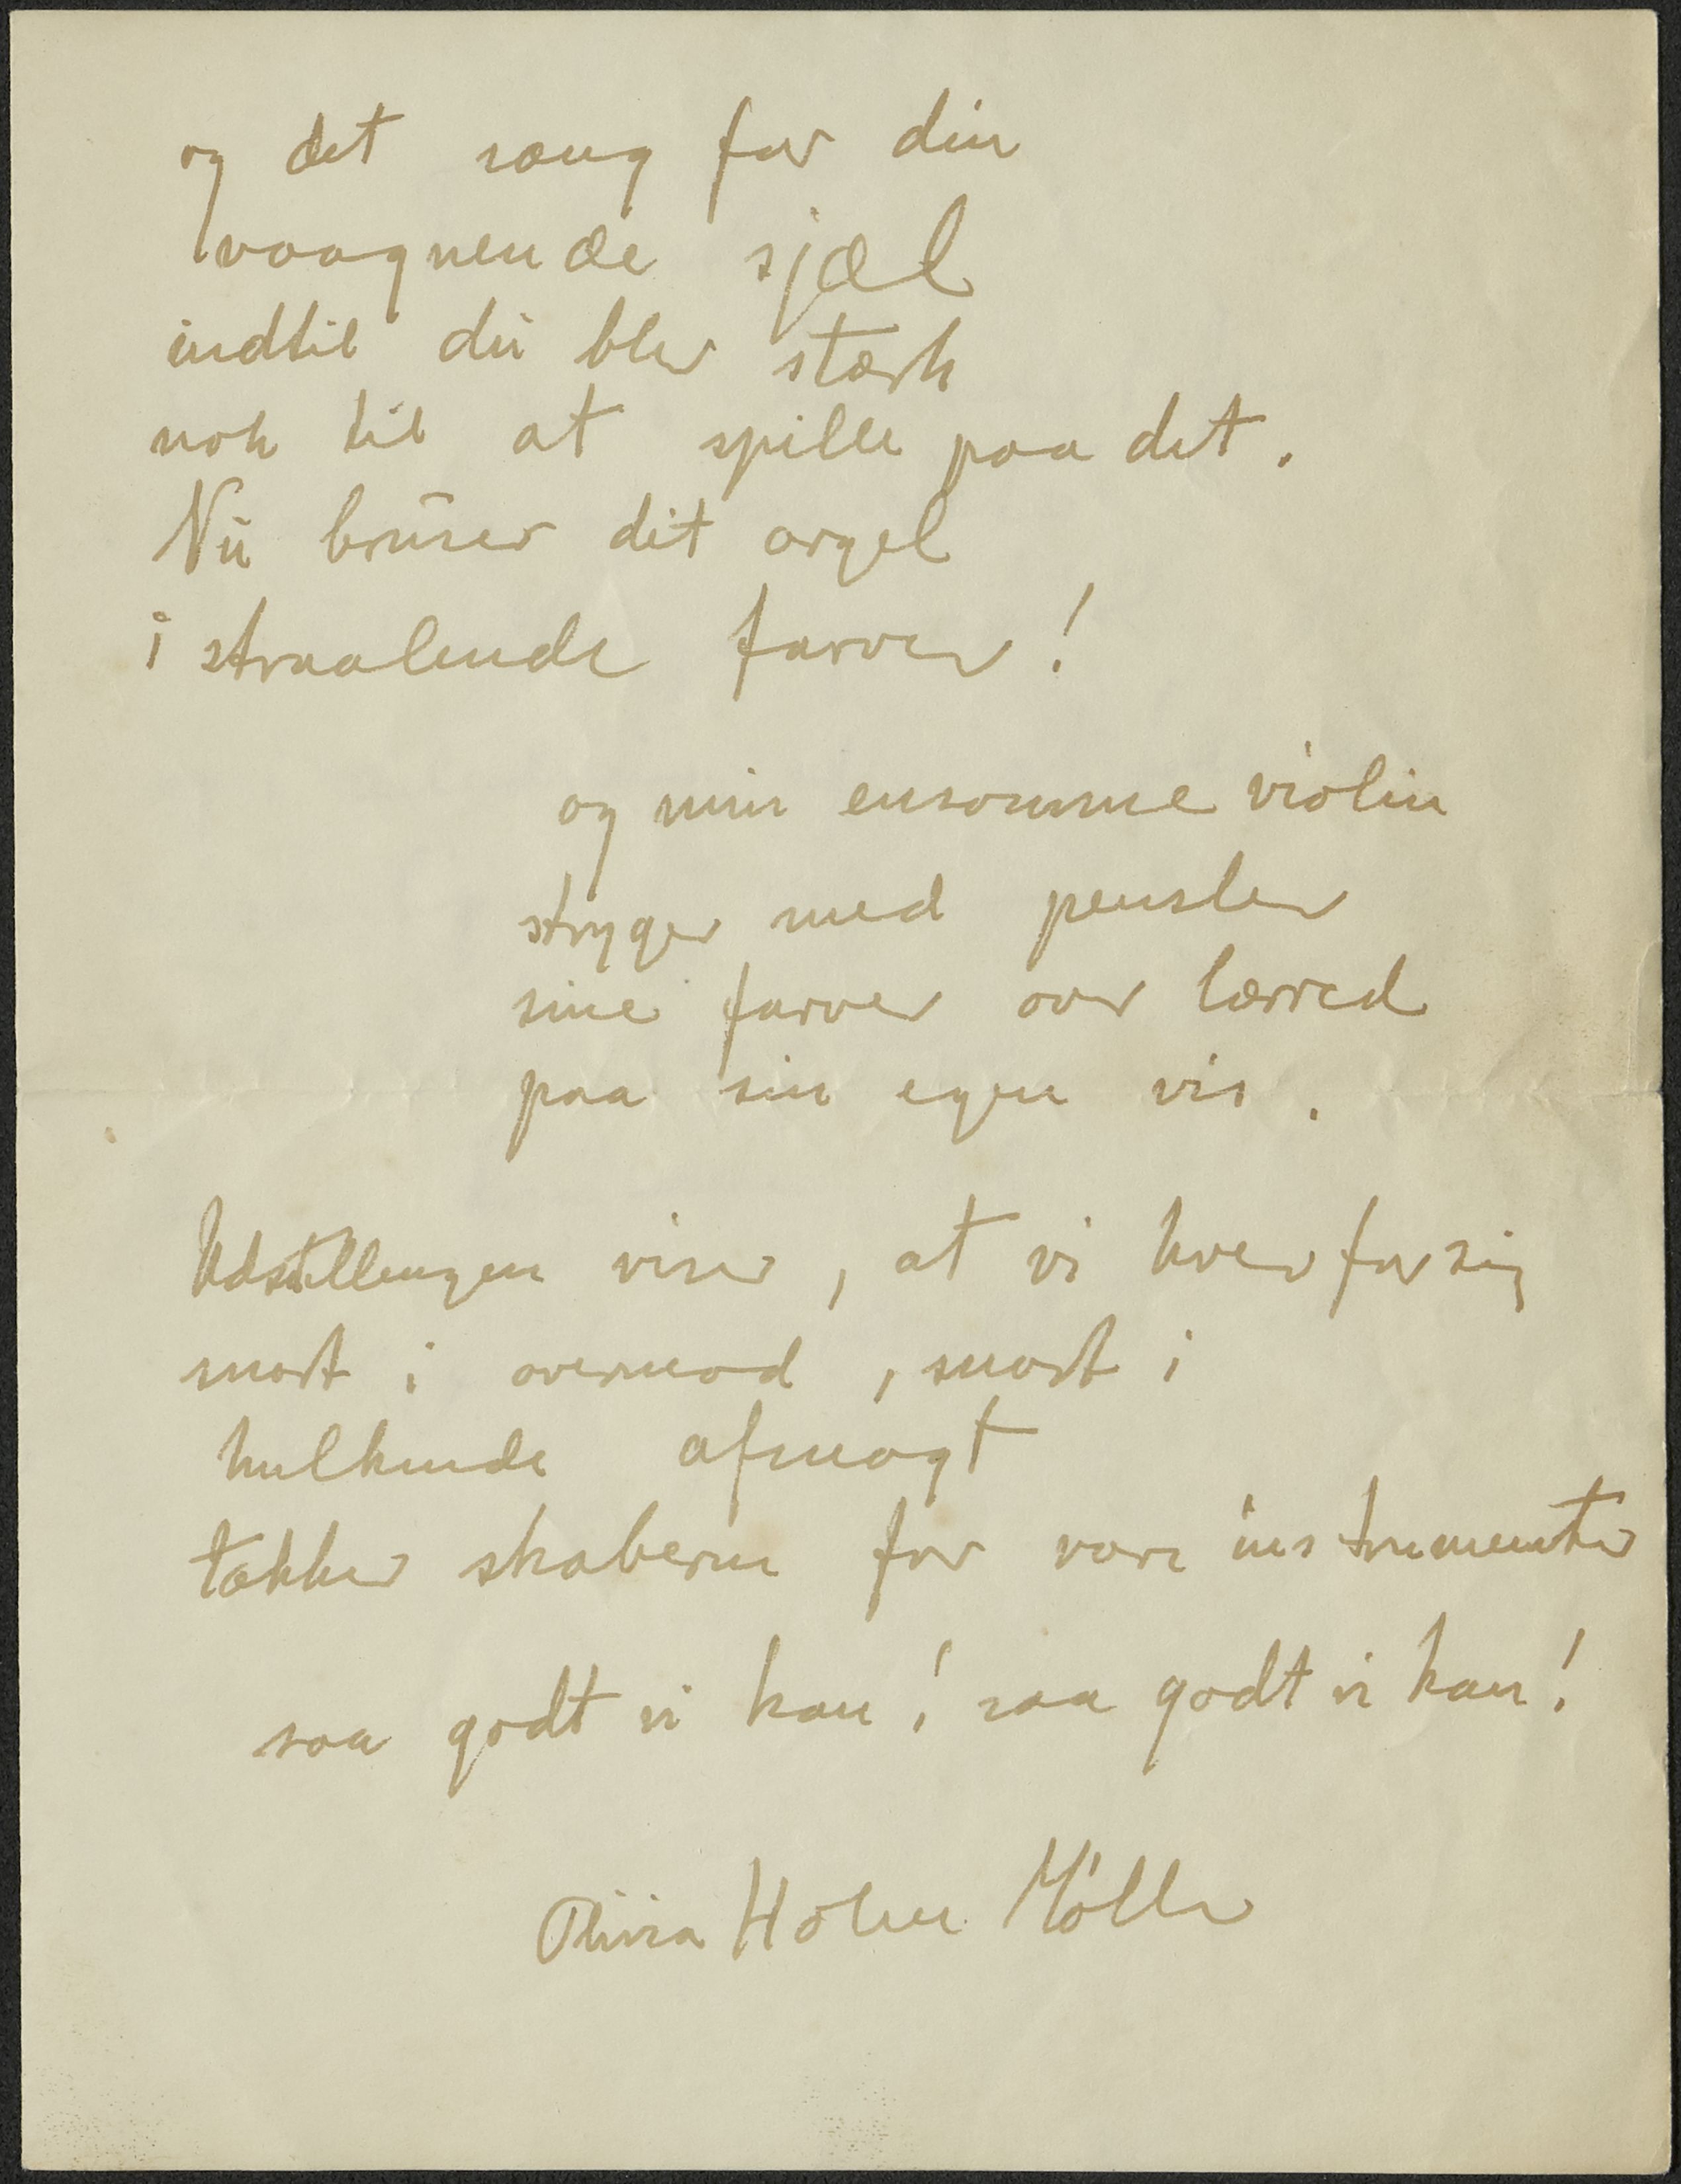 og det sang for din
vaagnende sjæl
indtil du blev stærk
nok til at spille paa det.
Nu bruser dit orgel
i straalende farver!
og min ensomme violin
stryger med pensler
sine farver over lærred
paa sin egen vis.
Udstillingen viser, at vi hver for sig
snart i overmod, snart i
hulkende afmagt
takker skaberen for vore instrumenter
saa godt vi kan! saa godt vi kan!
Olivia Holm Möller